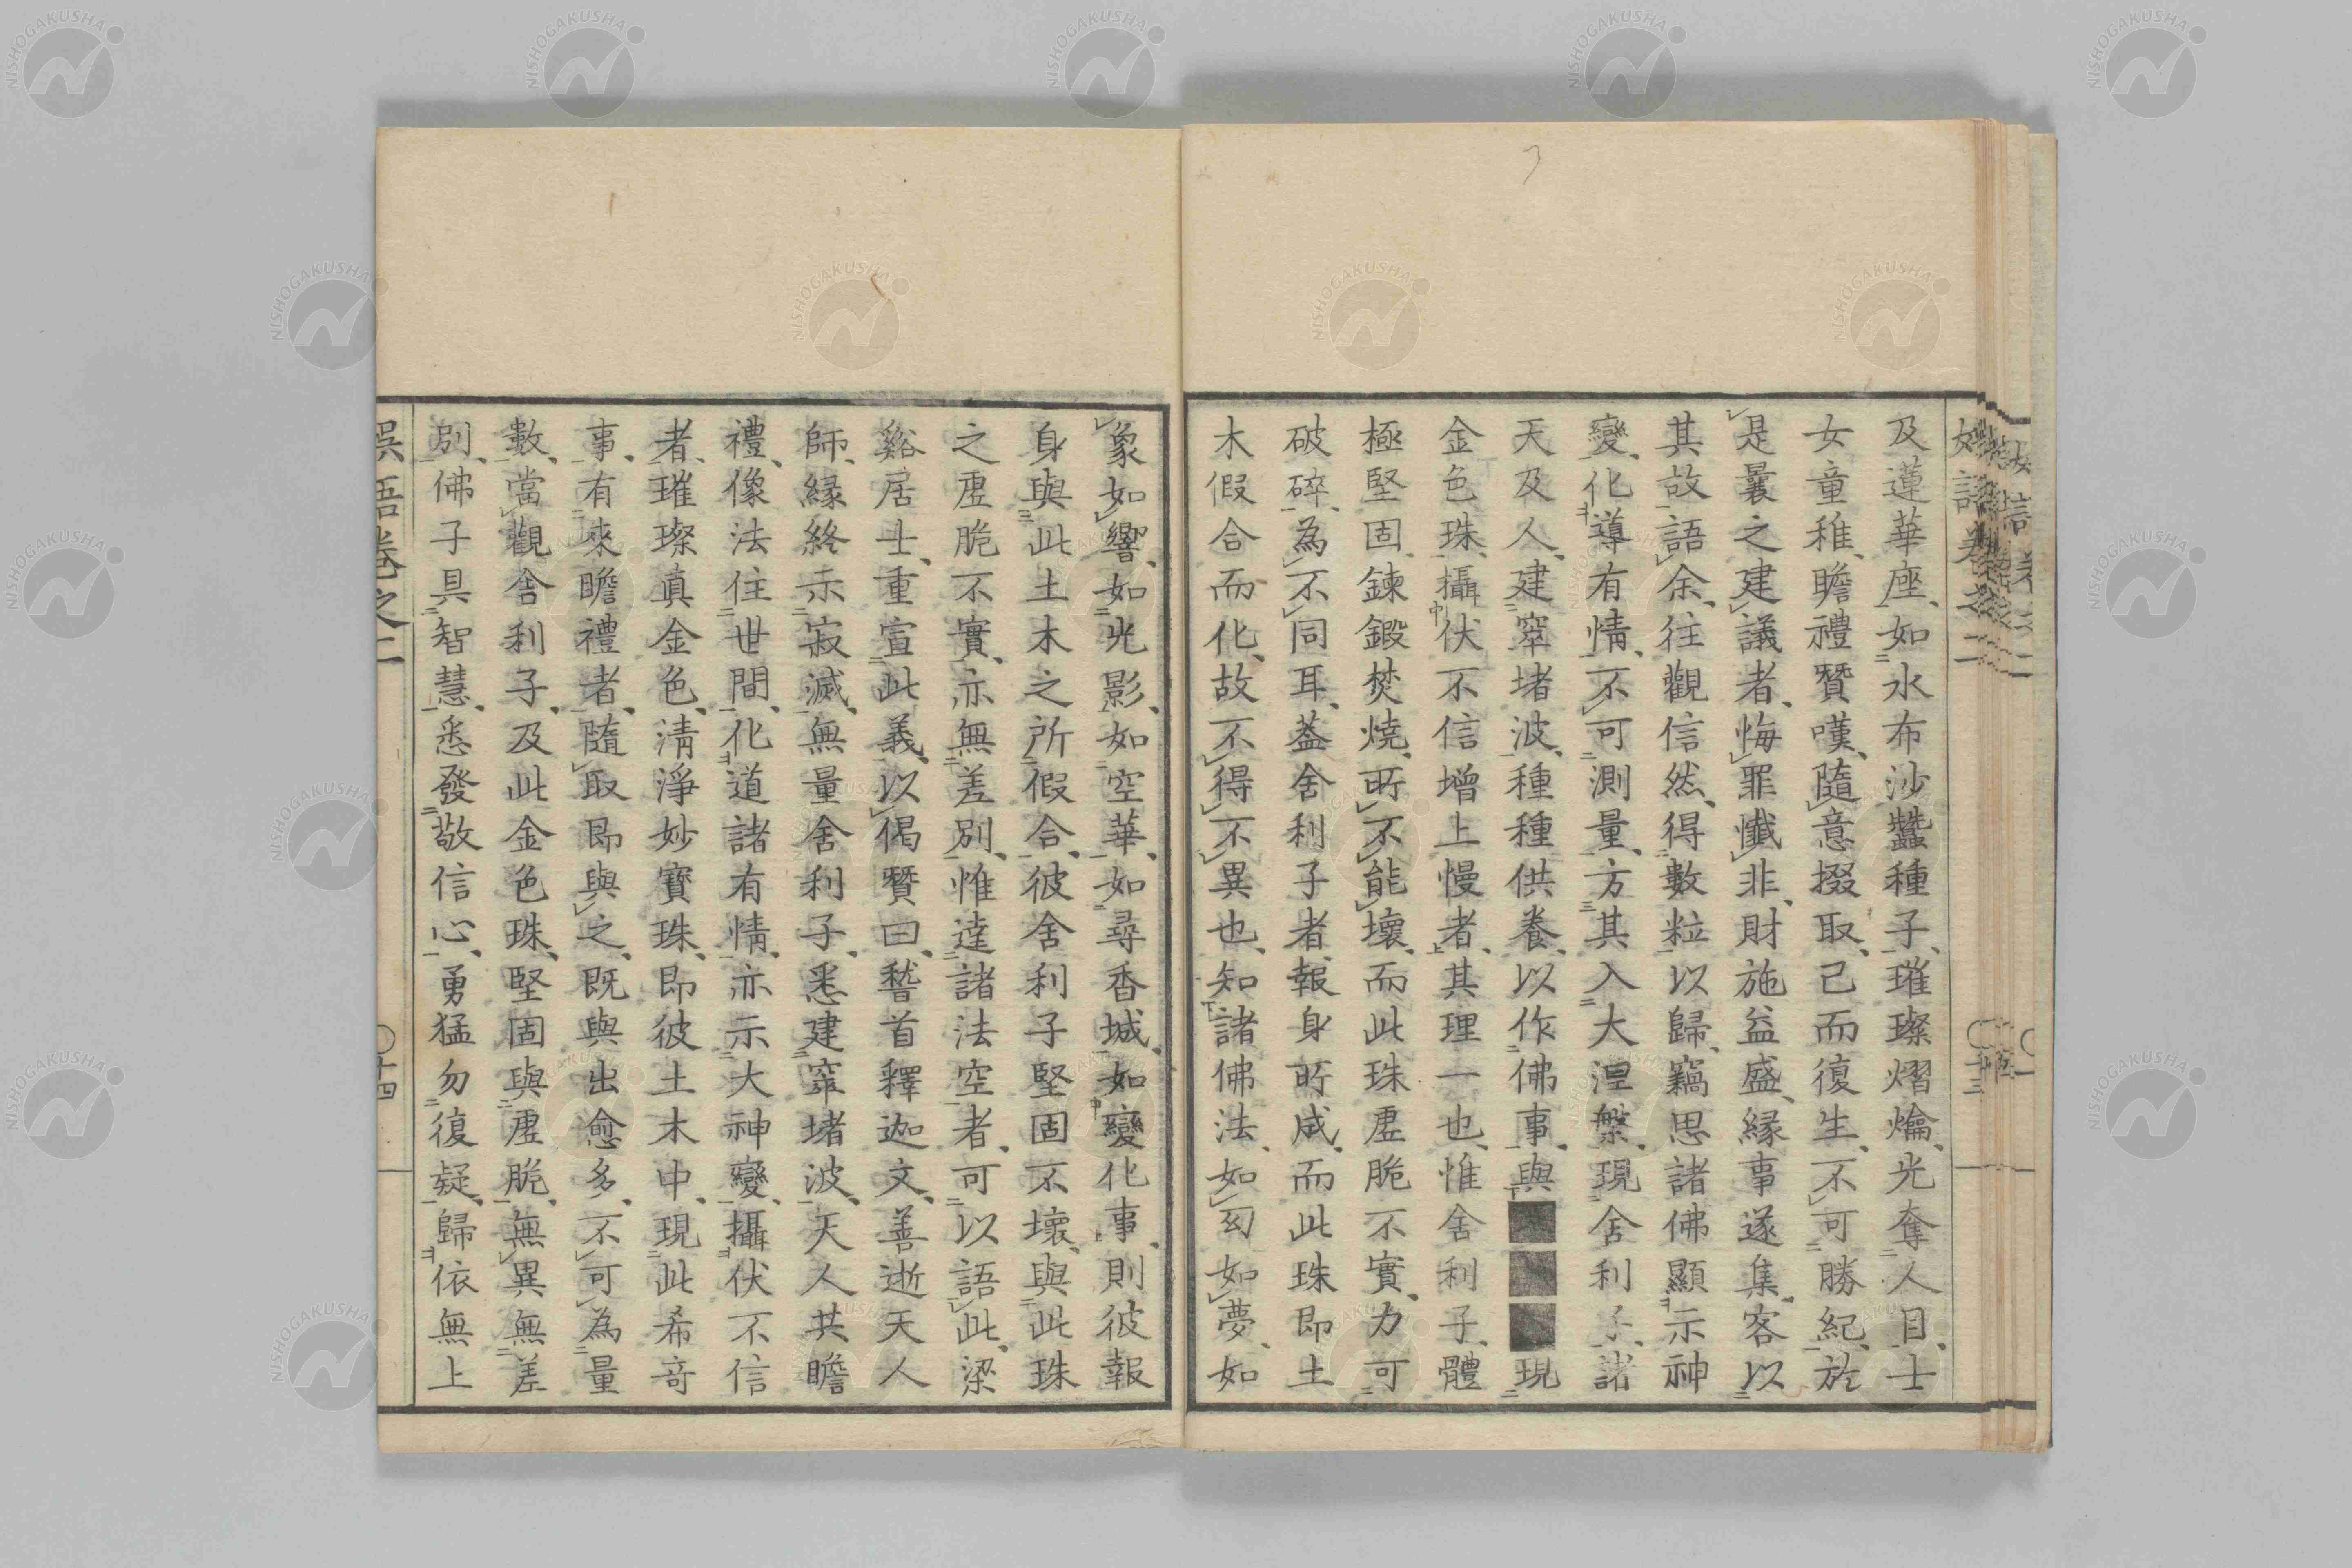 及蓮華座如水布沙蠶種子璀璨熠爚光奪人目士
女童稚瞻禮贊嘆隨意掇取已而復生不可勝紀於
是曩之建議者悔罪懺非財施益盛緣事遂集客以
其故語余往觀信然得數粒以歸竊思諸佛顯示神
變化導有情不可測量方其入大涅槃現舍利子諸
天及人建窣堵波種種供養以作佛事與■■■現
金色珠攝伏不信增上慢者其理一也惟舍利子體
極堅固鍊鍛焚燒所不能壞而此珠虛脆不實力可
破碎為不同耳蓋舍利子者報身所成而此珠即土
木假合而化故不得不異也知諸佛法如幻如夢如
象如響如光影如空華如尋香城如變化事則彼報
身與此土木之所假合彼舍利子堅固不壞與此珠
之虛脆不實亦無差別惟達諸法空者可以語此梁
谿居士重宣此義以偈贊曰稽首釋迦文善逝天人
師緣終示寂滅無量舍利子悉建窣堵波天人共瞻
禮像法住世間化道諸有情亦示大神變攝伏不信
者璀璨真金色清淨妙寶珠即彼土木中現此希奇
事有來瞻禮者隨取即與之既與出愈多不可為量
數當觀舍利子及此金色珠堅固與虛脆無異無差
別佛子具智慧悉發敬信心勇猛勿復疑歸依無上
娯語卷之二
十四
NISHOGAKUSHA